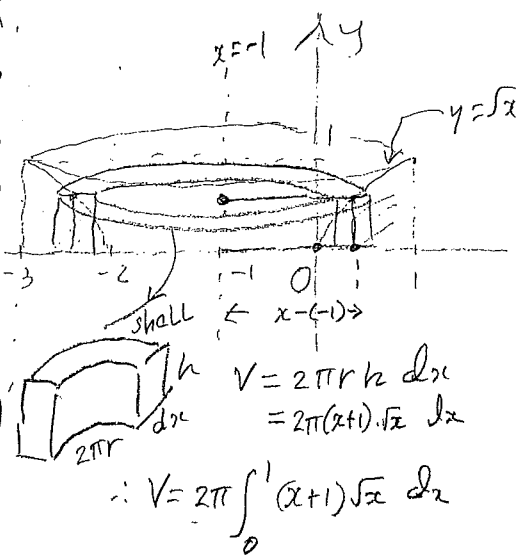 x=-1
y
y=√x
1
-3 -2 -1 0 1
shell
← x-(-1) →
h
dx
2πr
V = 2πrh dx
= 2π(x+1).√x dx
∴ V = 2π ∫₀¹ (x+1)√x dx